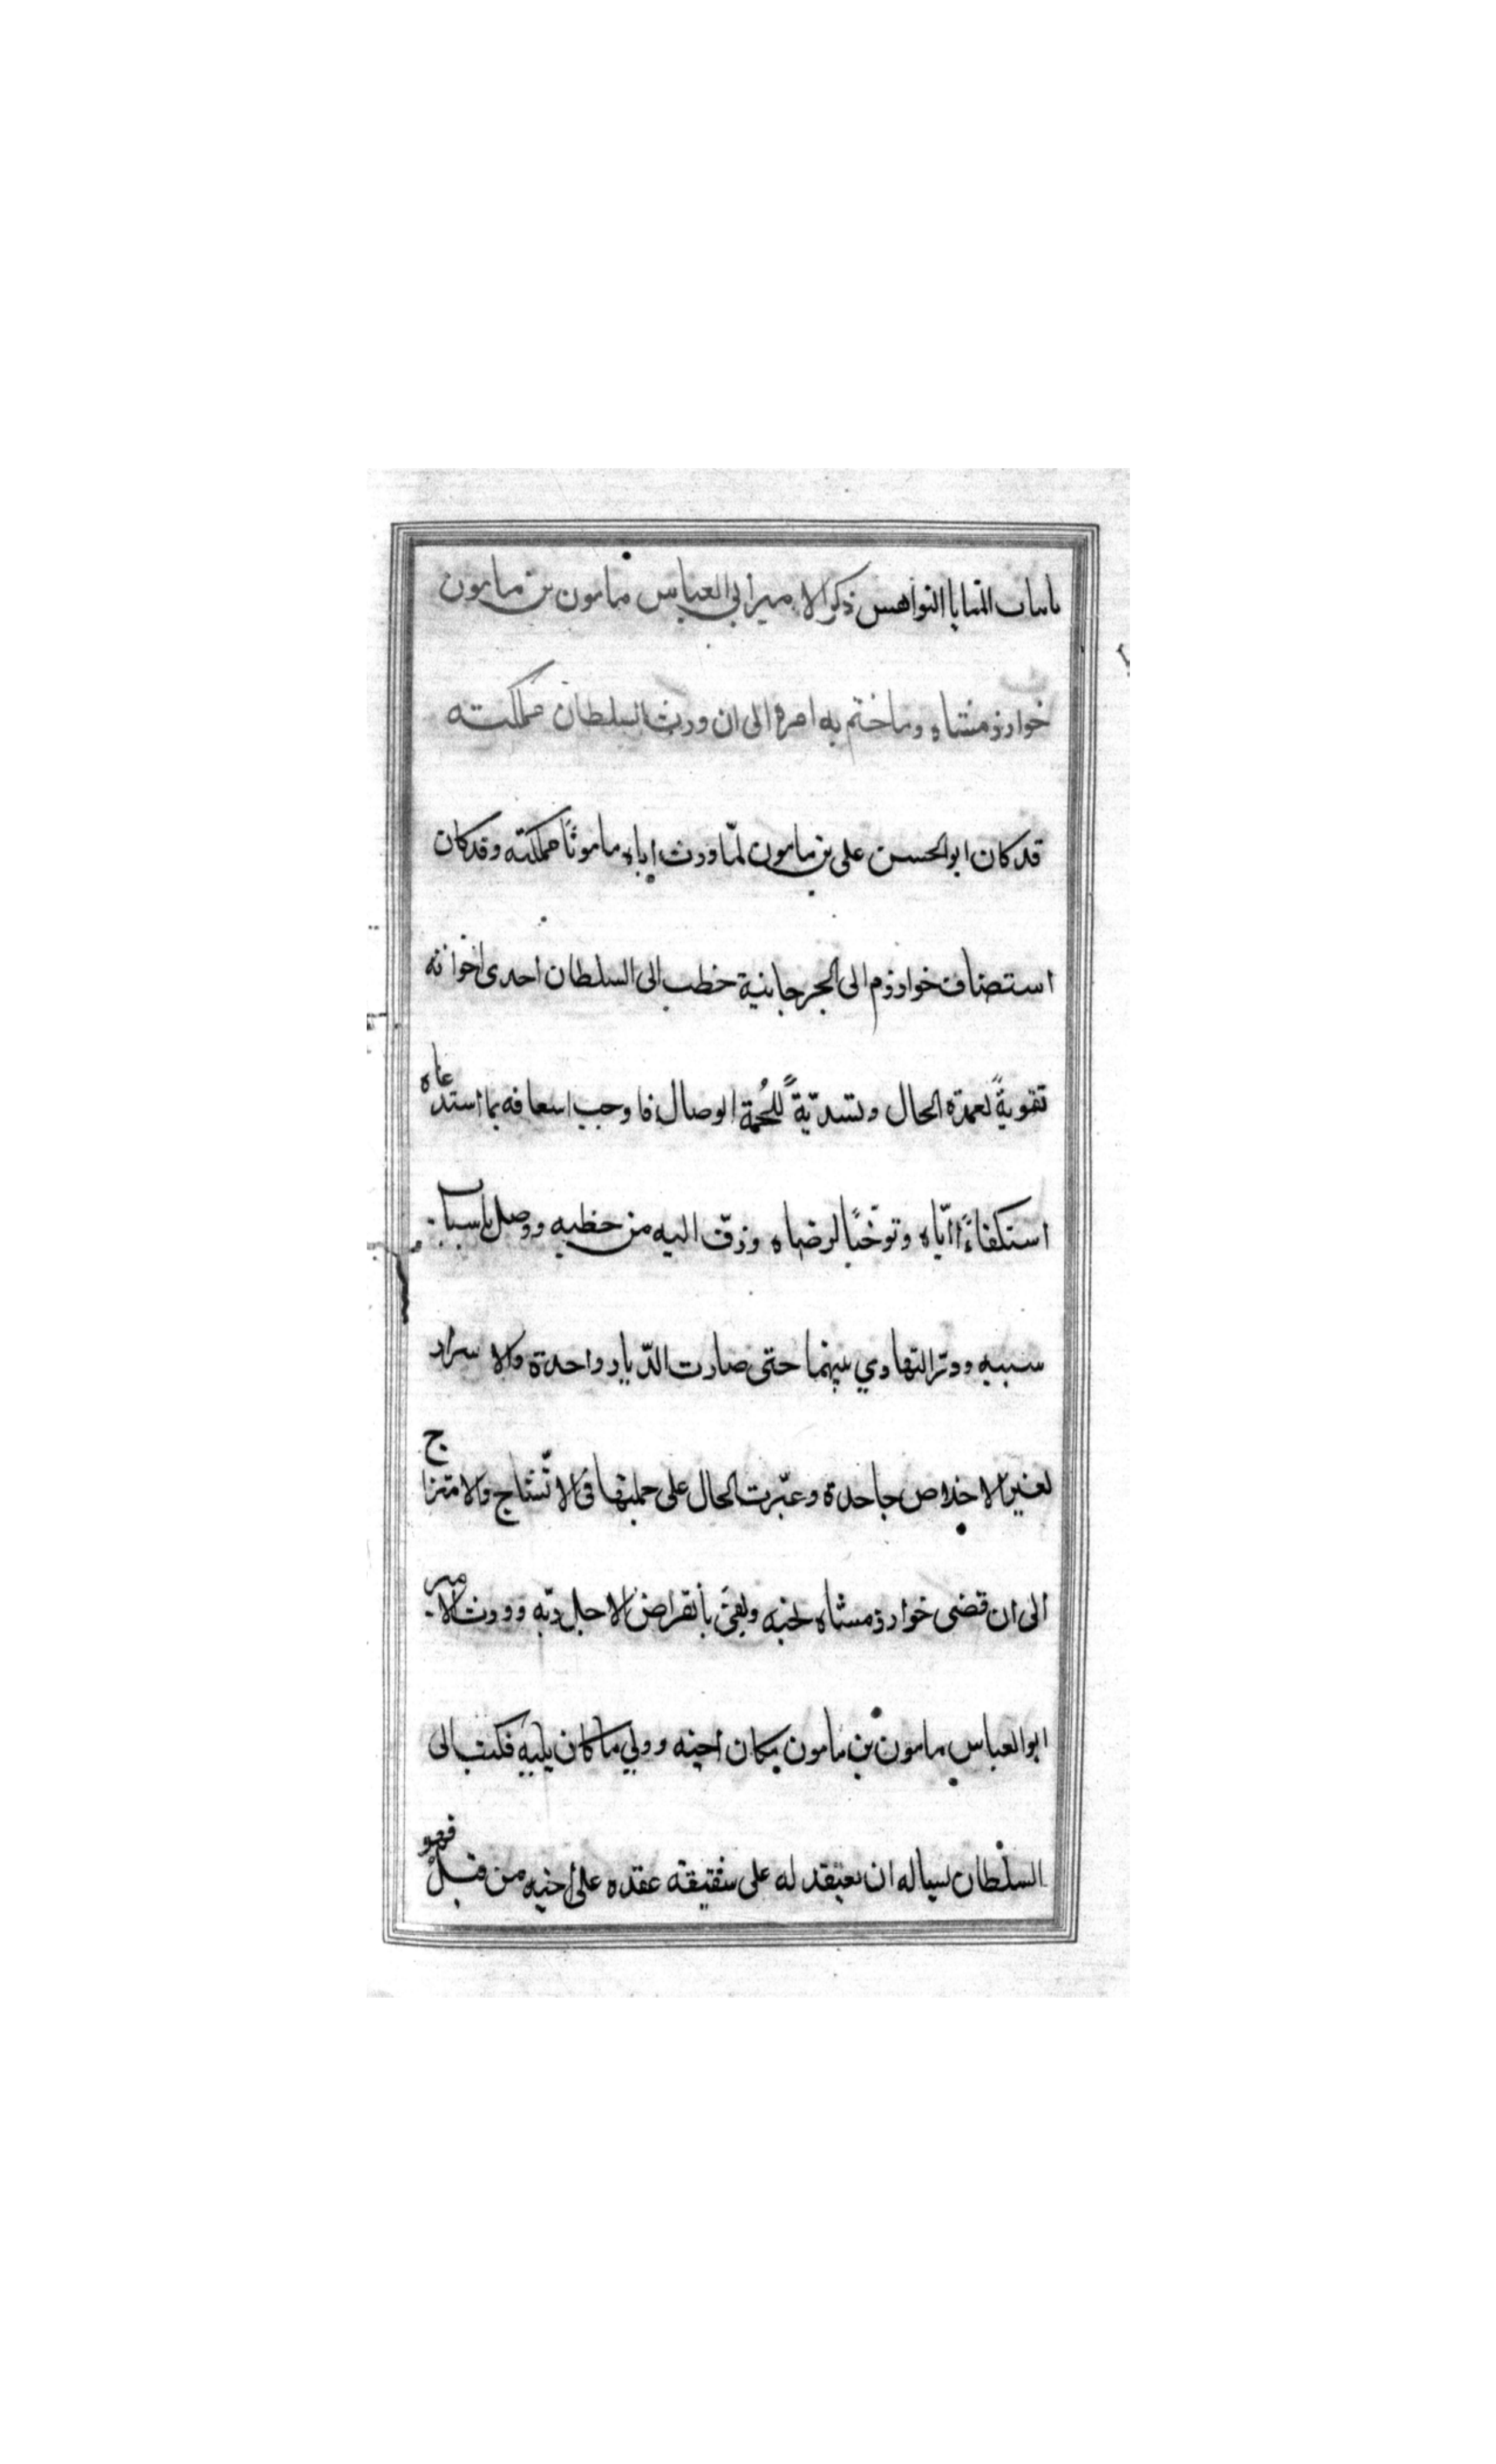 بانياب المنايا النواهس ذكر الامير ابى العباس مامون بن مامون
خوارزمشاه وما ختم به امره الى ان ورث السلطان مملكته
قد كان ابو الحسن على بن مامون لمّا ورث اباه مامونًا مملكته وقد كان
استضاف خوارزم الى الجرجانية خطب الى السلطان احدى اخواته
تقويةً لعمدة الحال وتسديّةً للُحمة الوصال فاوجب اسعافه بما استدعاه
استكفاءً ايّاه وتوخّيًا لرضاه وزفّ اليه من خطبه ووصل باسبابه
سببه ووتر التهادي بينهما حتى صارت الدّيار واحدة والاسرار
لغير الاخلاص جاحدة وعبّرت الحال على جملتها فى الاتّشاج والامتزاج
الى ان قضى خوارزمشاه نحبه ولقى بانقراض الاجل ربّه وورث الامير
ابو العباس مامون بن مامون مكان اخيه وولي ما كان يليه فكتب الى
السلطان يساله ان يعتقد له على شقيقته عقده على اخيه من قبل فهو